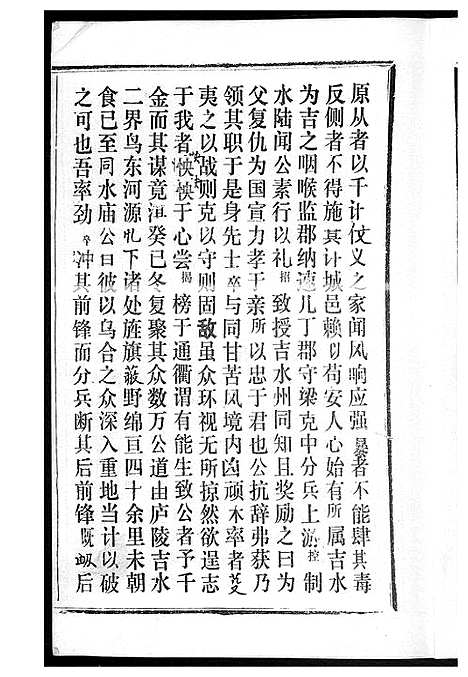 原从者以千计仗义之家闻风响应强暴者不能肆其毒
反侧者不得施其计城邑赖以苟安人心始有所属吉水
为吉之咽喉监郡纳速儿丁郡守梁克中分兵上游控制
水陆闻公素行以礼招致授吉水州同知且奖励之曰为
父复仇为国宣力孝于亲所以忠于君也公抗辞弗获乃
领其职于是身先士卒与同甘苦风境内凶顽木率者芟
夷之以战则克以守则固敌虽众环视无所掠然欲逞志
于我者怏怏于心尝揭榜于通衢谓有能生致公者予千
金而其谋竟沮癸巳冬复聚其众数万公道由庐陵吉水
二界乌东河源虬下诸处旌旗蔽野绵亘四十余里未朝
食已至同水庙公曰彼以乌合之众深入重地当计以破
之可也吾率劲卒冲其前锋而分兵断其后前锋既衂后